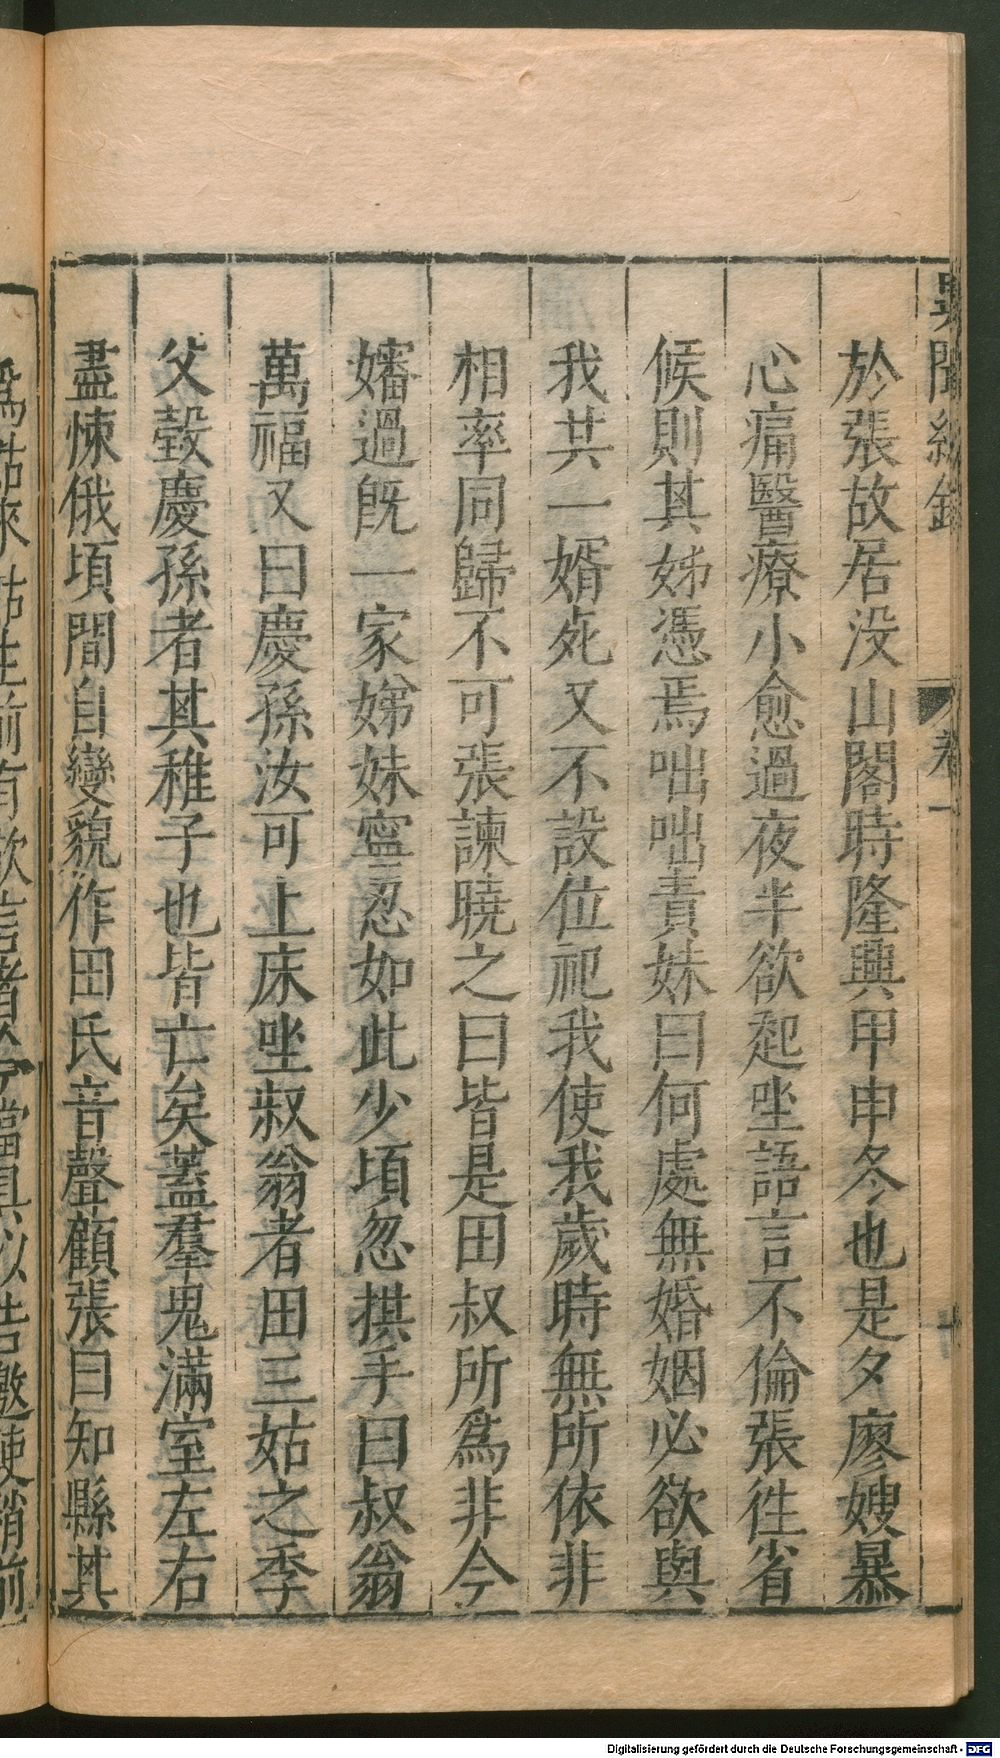 異聞總錄
卷一
十
於張故居没山閣時隆興甲申冬也是夕廖嫂暴
心痛醫療小愈過夜半欲起坐語言不倫張徃省
候則其姊憑焉咄咄責妹曰何處無婚姻必欲與
我共一婿死又不設位祀我使我歲時無所依非
相率同歸不可張諫曉之曰皆是田叔所爲非今
嬸過旣一家娣妹寧忍如此少頃忽拱手曰叔翁
萬福又曰慶孫汝可上床坐叔翁者田三姑之季
父瑴慶孫者其稚子也皆亡矣蓋羣鬼滿室左右
盡悚俄頃間自變貌作田氏音聲顧張曰知縣其
爲姑來姑生前有